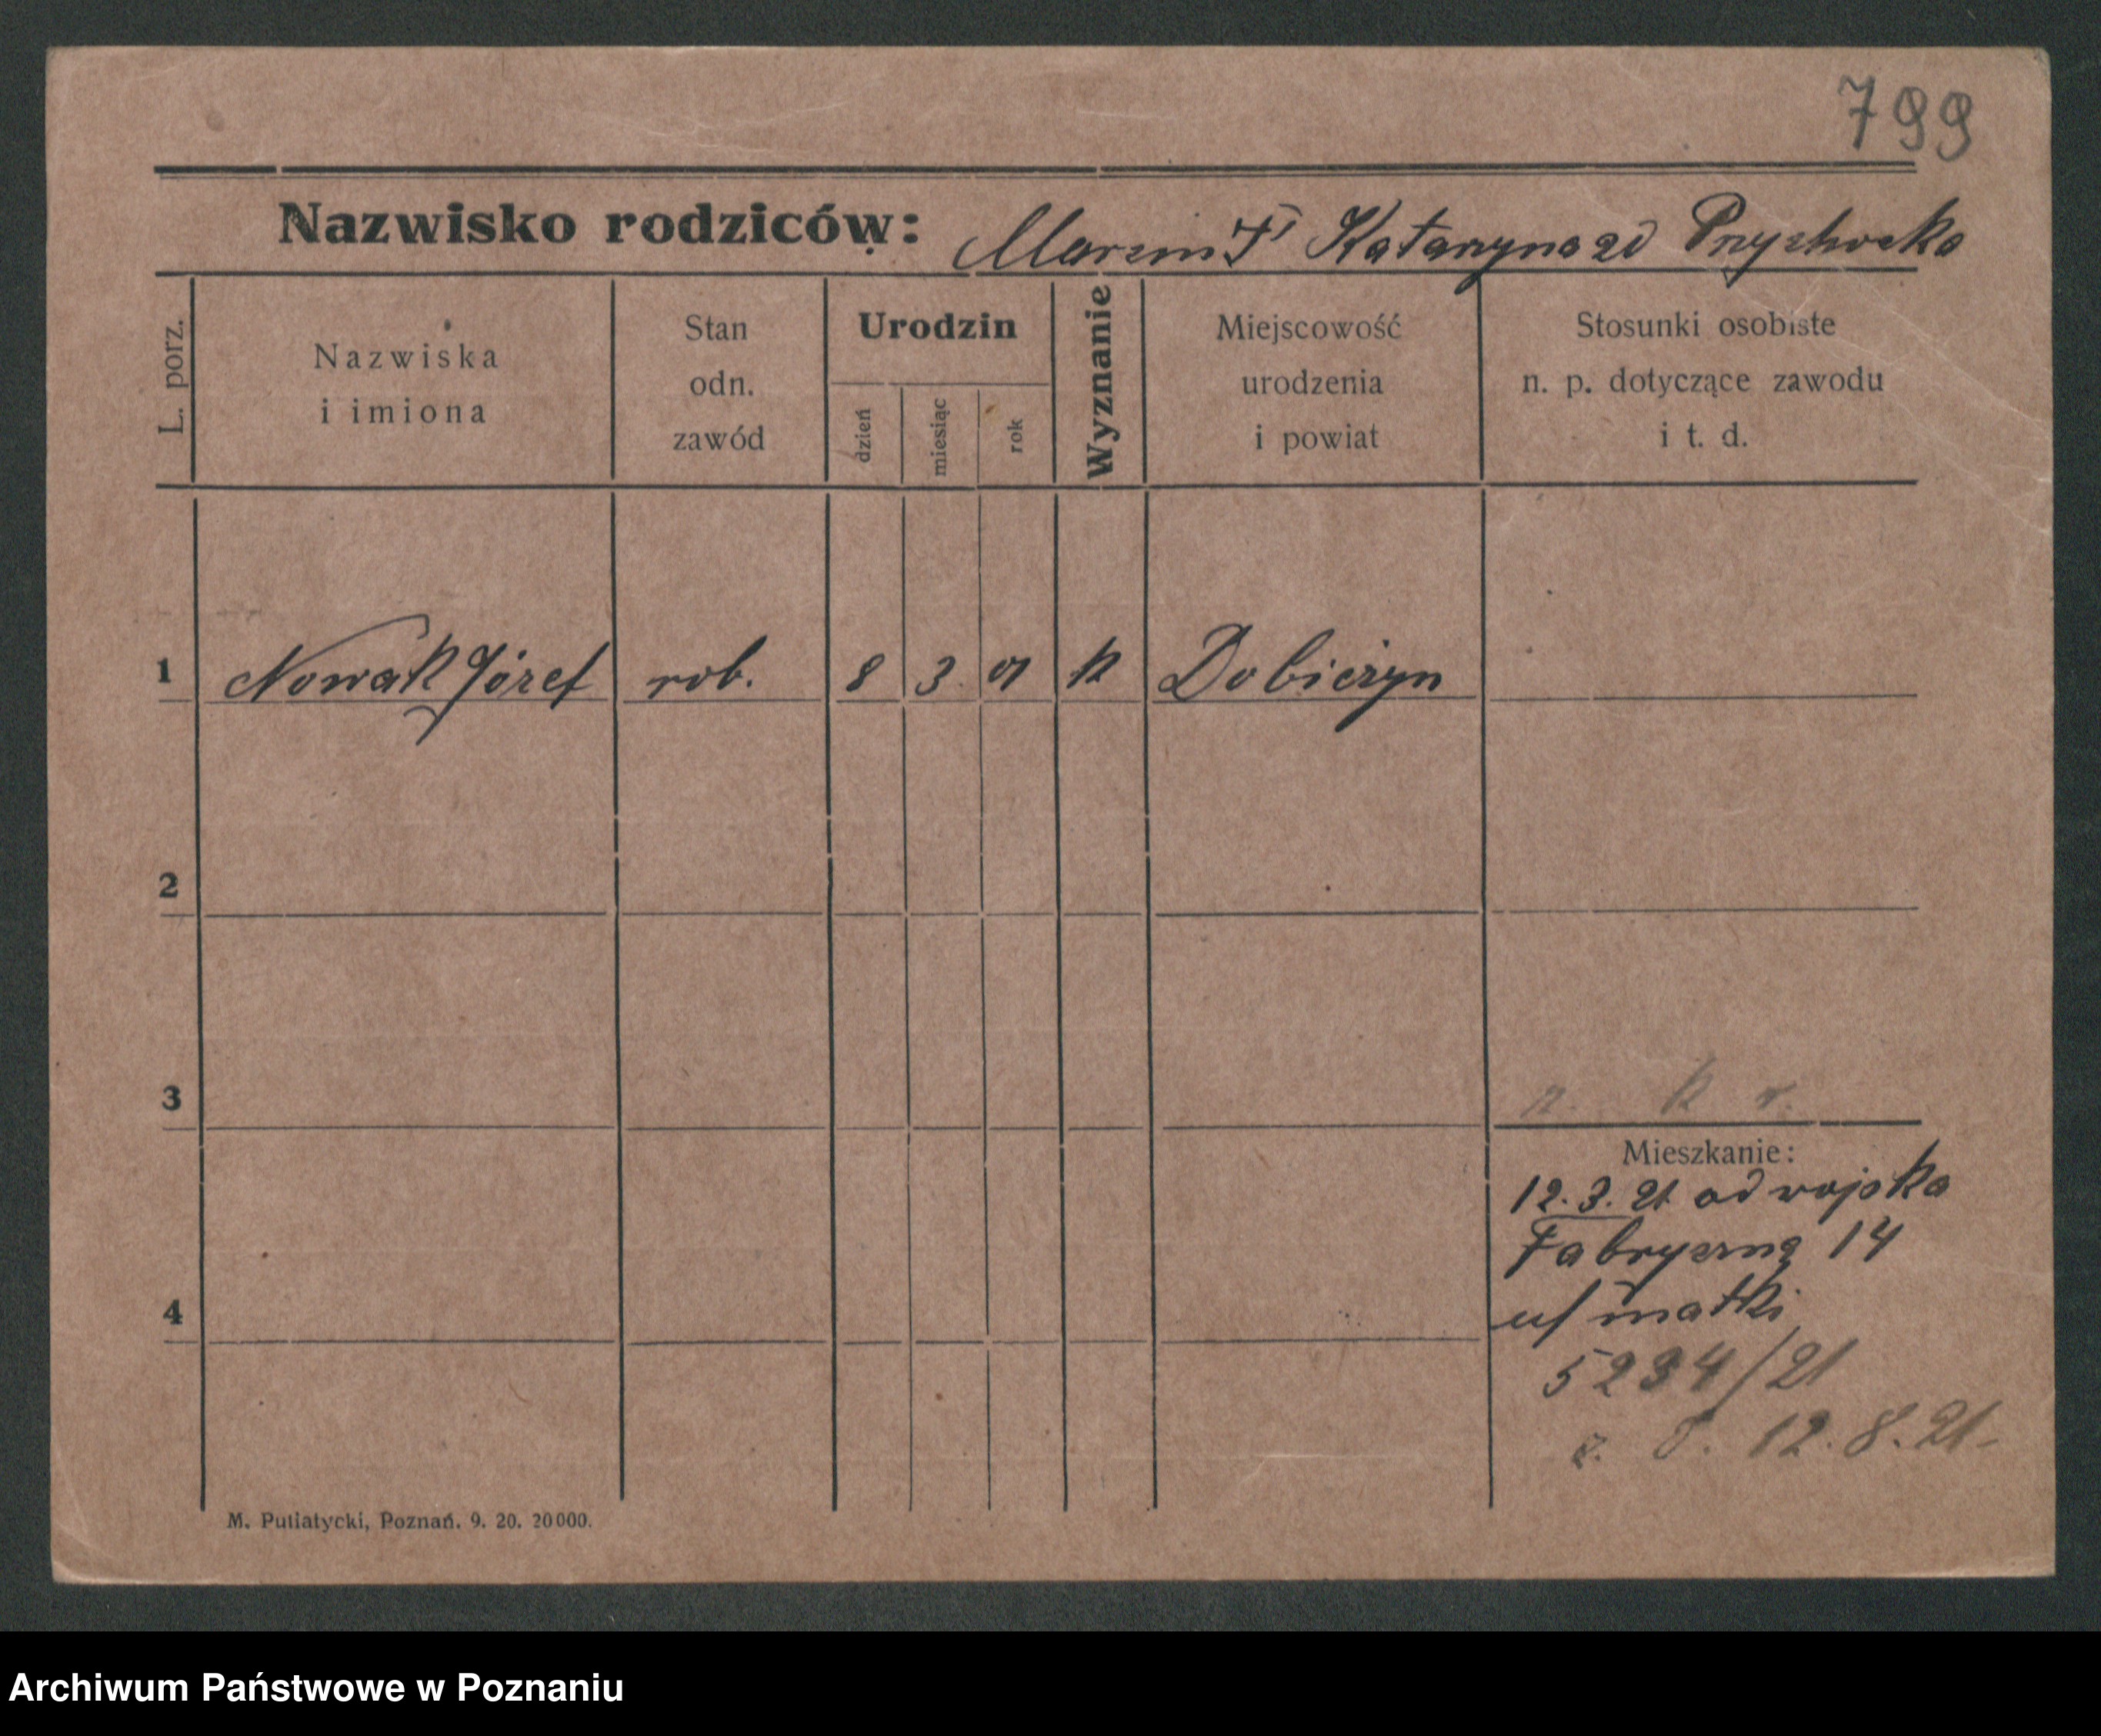 799
Nazwisko rodziców: Marcin † Katarzyna zd
L. porz.
Nazwiska
i imiona
Stan
odn.
zawód
Urodzin
dzień
miesiąc
rok
Wyznanie
Miejscowość
urodzenia
i powiat
Stosunki osobiste
n. p. dotyczące zawodu
i t. d.
1 Nowak Józef rob. 8 3 01 k Dobieżyn
2
3
4
Mieszkanie:
12.3.21 od wojska
Fabryczna 14
u/ matki
5234/21
12.8.21
M. Putiatycki, Poznań. 9. 20. 20000.
Archiwum Państwowe w Poznaniu